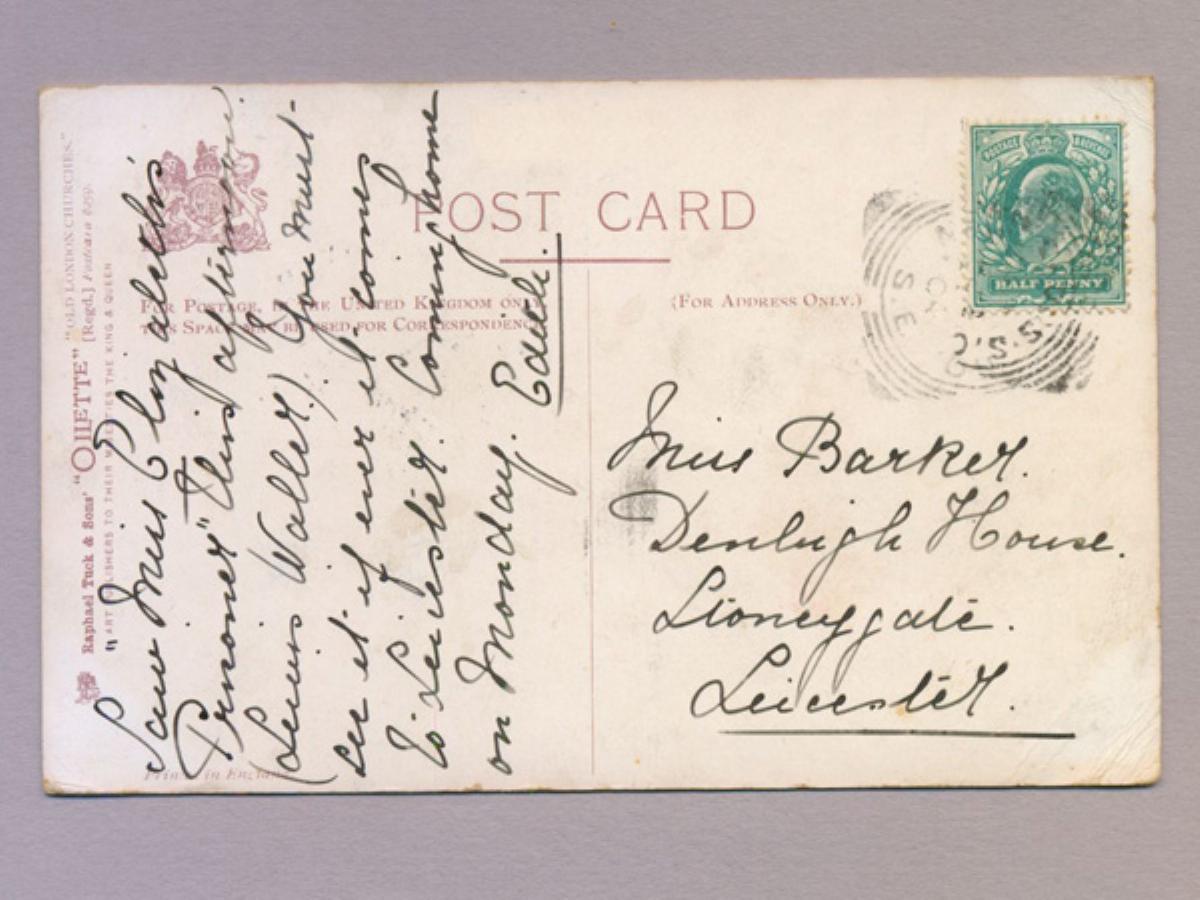 "OLD LONDON CHURCHES."
Raphael Tuck & Sons' "OILETTE" [Regd.] Postcard 6259.
ART PUBLISHERS TO THEIR MAJESTIES THE KING & QUEEN
Printed in England
POST CARD
FOR POSTAGE, IN THE UNITED KINGDOM ONLY
THIS SPACE MAY BE USED FOR CORRESPONDENCE
(FOR ADDRESS ONLY.)
POSTAGE & REVENUE
HALF PENNY
S.E
S.S.C
Saw Miss Elizabeth's
Prisoner" this afternoon.
(Lewis Waller.) You must
see it if ever it comes
to Leicester. Coming home
on Monday. Edith.
Miss Barker.
Denbigh House.
Stoneygate.
Leicester.